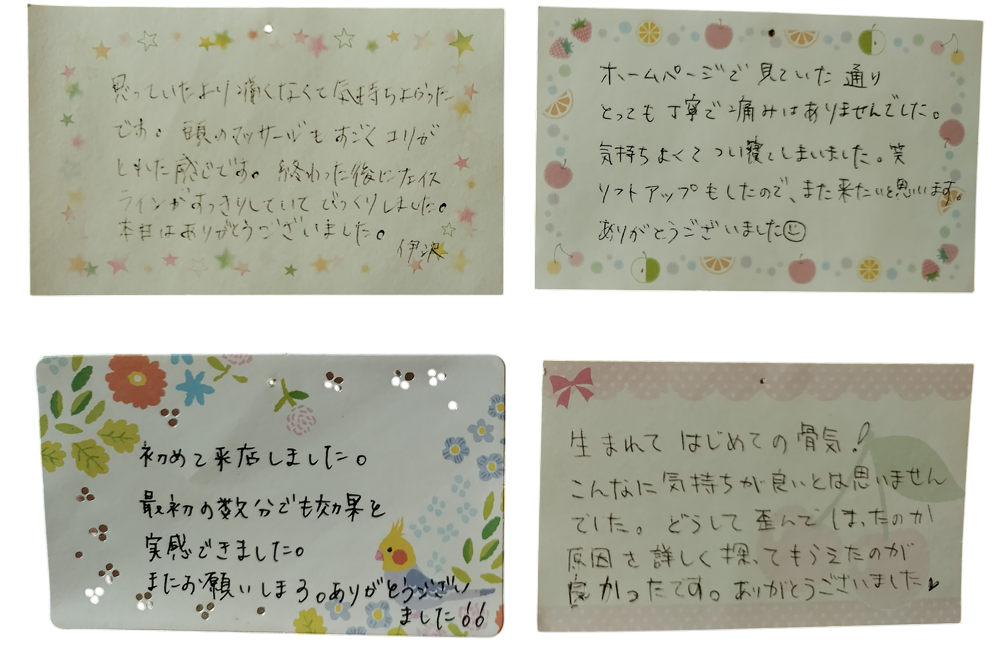 思っていたより痛くなくて気持ちよかった
です。頭のマッサージもすごくコリが
とれた感じです。終わった後にフェイス
ラインがすっきりしていてびっくりしました。
本日はありがとうございました。
伊波
ホームページで見ていた通り
とっても丁寧で痛みはありませんでした。
気持ちよくてつい寝てしまいました。笑
リフトアップもしたので、また来たいと思います。
ありがとうございました☺
初めて来店しました。
最初の数分でも効果を
実感できました。
またお願いしまろ。ありがとうござい
ました!!
生まれてはじめての骨気!
こんなに気持ちが良いとは思いません
でした。どうして歪んでしまったのか
原因を詳しく探ってもらえたのが
良かったです。ありがとうございました♥